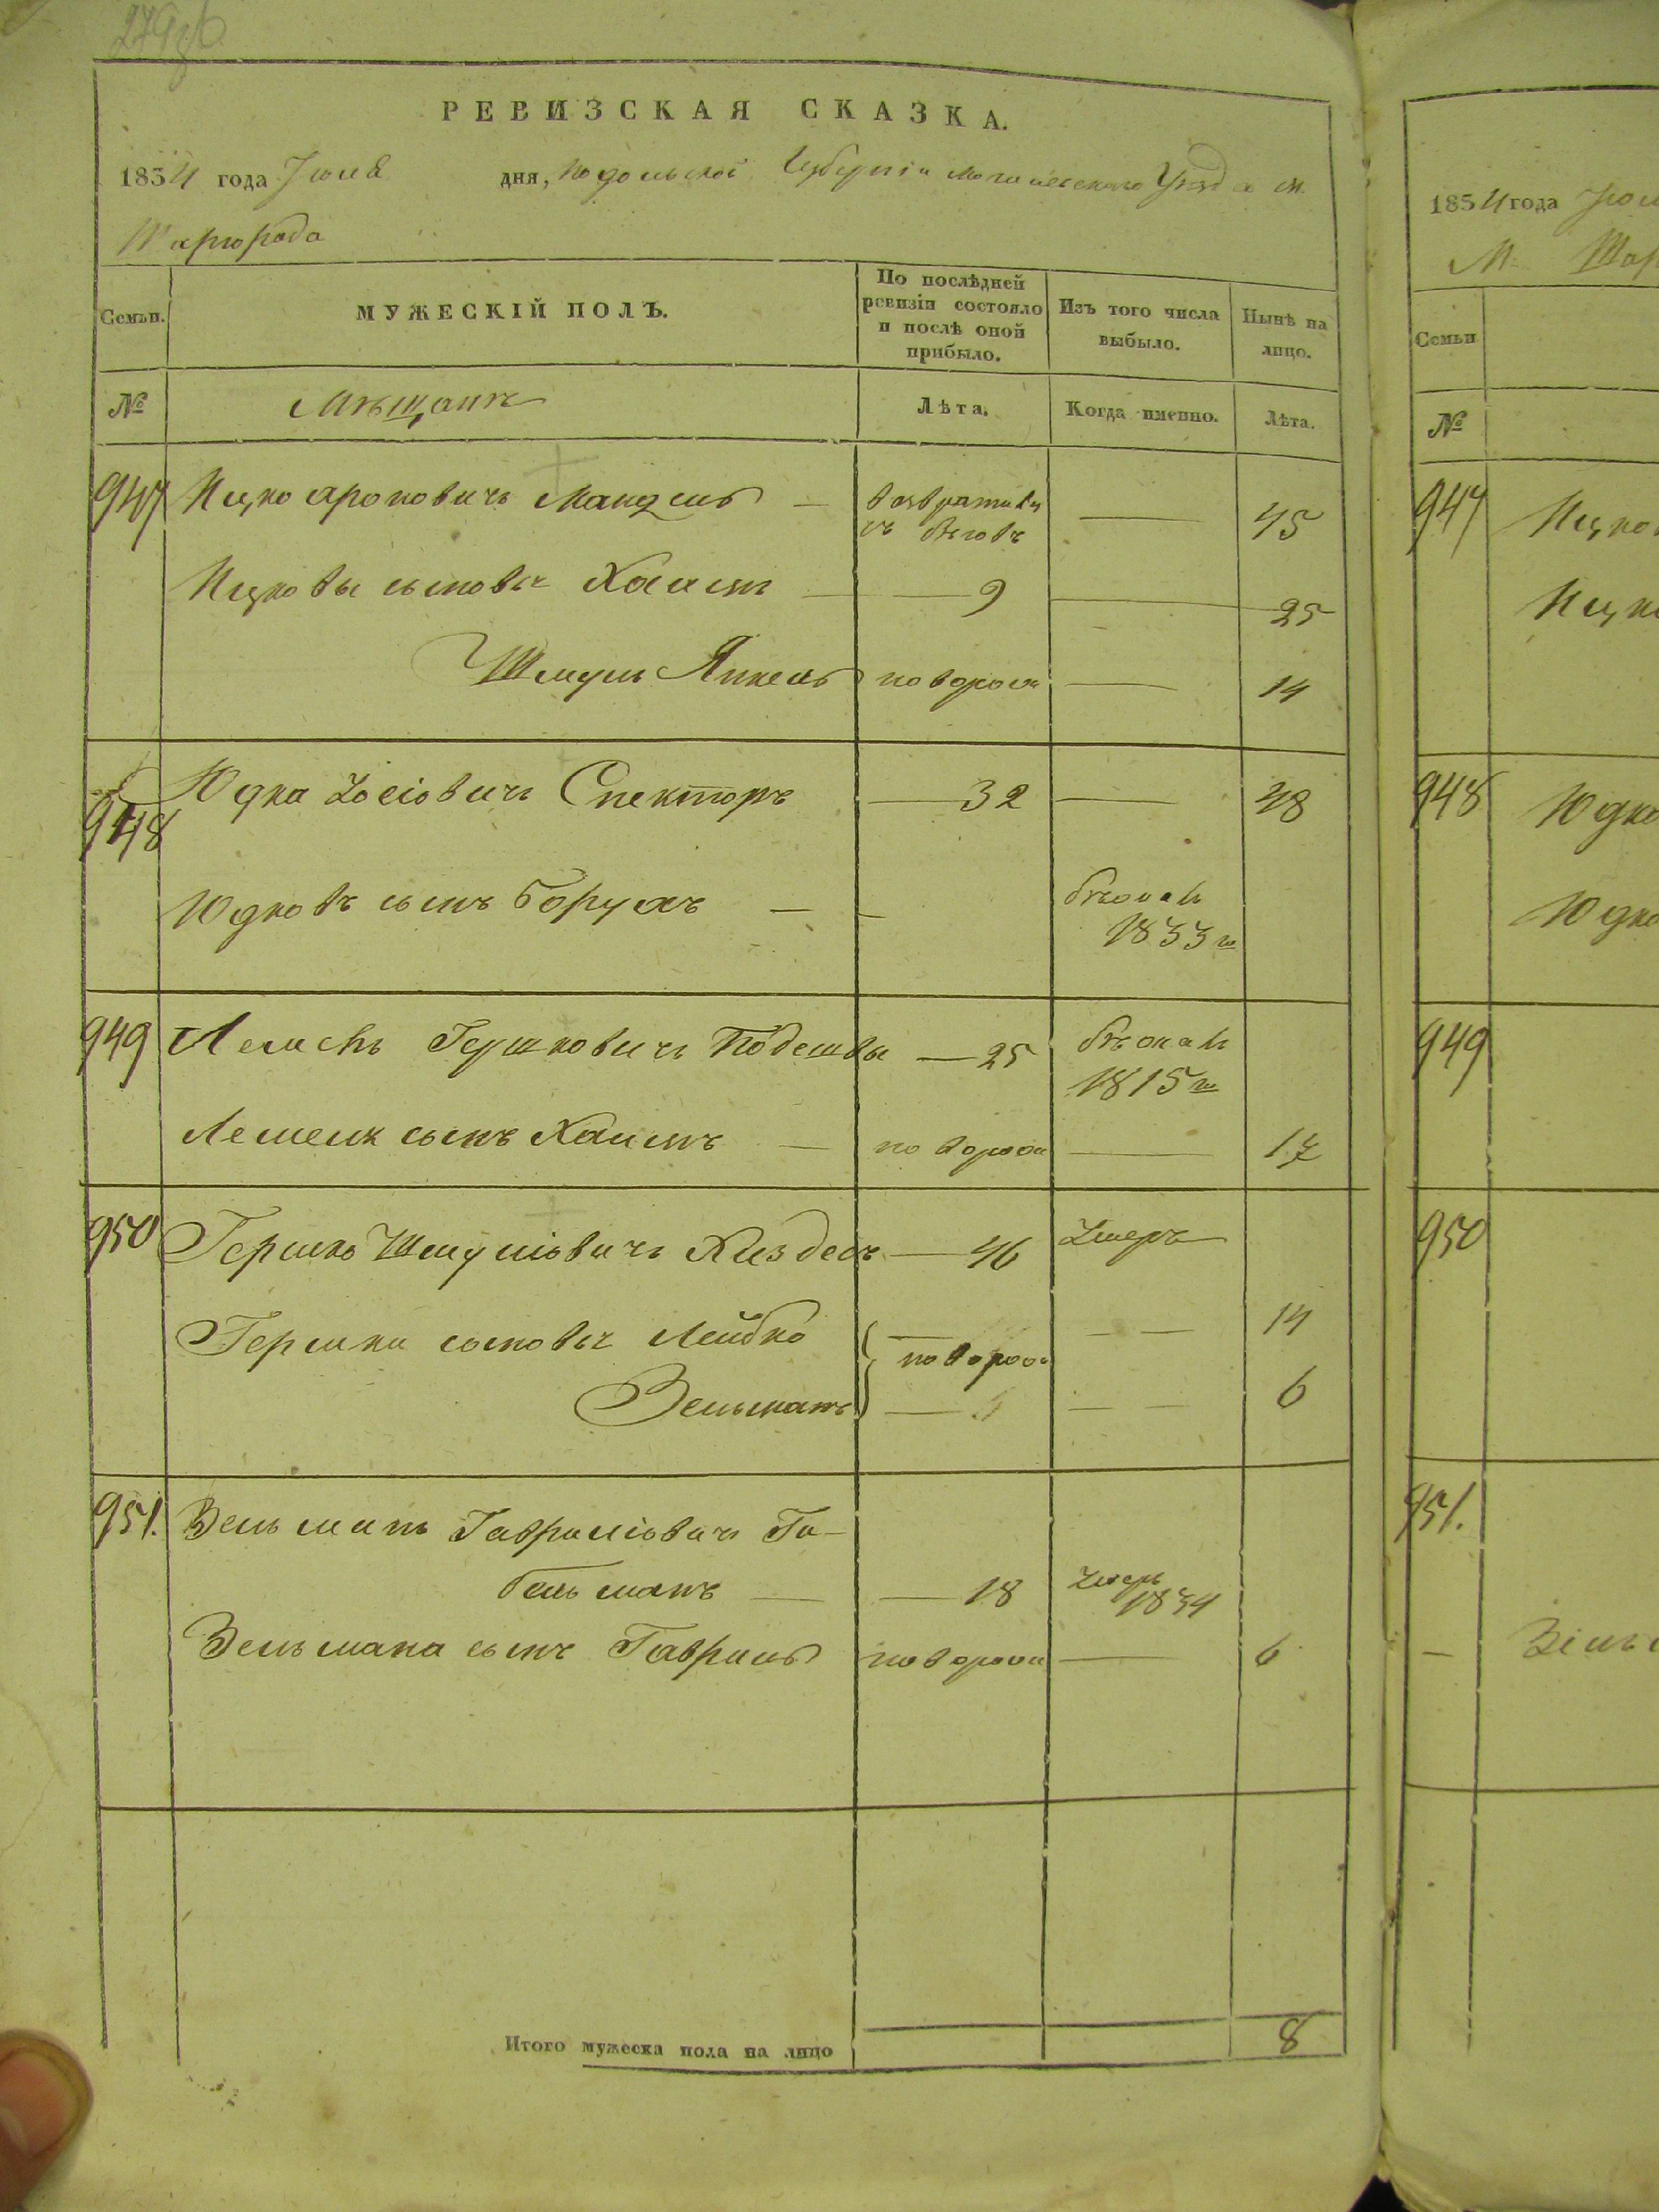 РЕВИЗСКАЯ СКАЗКА.
1854 года Июля дня, Подольской Губерніи Могилевскаго Уезда м.
Шаргорода
Семьи.
МУЖЕСКІЙ ПОЛЪ.
По послѣдней ревизіи состояло и послѣ оной прибыло.
Изъ того числа выбыло.
Нынѣ на лицо.
№
Мѣщанъ
Лѣта.
Когда именно.
Лѣта.
947 Ицко Ароновичъ Мандель — возвратився — 45
съ бѣговъ
Ицковы сыновья Хаимъ — 9 — 25
Шмуль Янкель новорож — 14
948 Юдка Іосіовичъ Спекторъ — 32 — 48
Юдковъ сынъ Борухъ — — бѣжалъ
1853 го
949 Гершковичъ Подешвы — 25 бѣжалъ
1815 го
сынъ Хаимъ — новорож — 17
950 Гершко Шмуліовичъ — 46 Умеръ
Гершки сыновья Лейбко — 14
новорож
Зельманъ — 6
951. Зельманъ Гавриліовичъ Га-
бельманъ — 18 Умеръ
1834
Зельмана сынъ Гавриль новорож — 6
Итого мужеска пола на лицо 8
1854 года
М. Шар
Семьи
№
947 Ицко
Ицк
948 Юдко
Юдко
949
950
951.
—